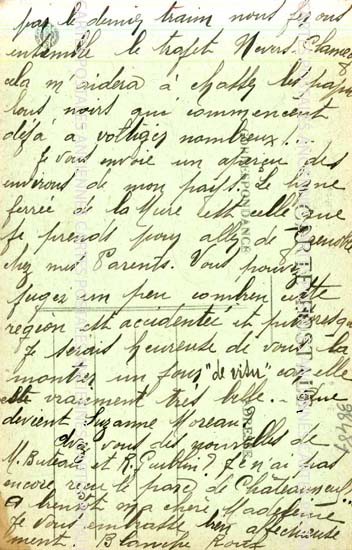 par le dernier train nous ferons
ensemble le trajet Nevers-Clamecy
cela m'aidera à chasser les papillons
noirs qui commencent
déjà à voltiger nombreux!..
Je vous envoie un aperçu des
environs de mon pays. La ligne
ferrée de la Mure est celle que
je prends pour aller de Grenoble
chez mes Parents. Vous pouvez
juger un peu combien cette
région est accidentée et pittoresque
Je serais heureuse de vous la
montrer un jour "de visu" car elle
est vraiment très belle.. Que
devient Suzanne Moreau
avez vous des nouvelles de
M. Buteau et R. ? Je n'ai pas
encore reçu le parc de Châteauneuf..
A bientôt ma chère Madeleine
Je vous embrasse bien affectueuse
ment. Blanche
CARTE POSTALE
CORRESPONDANCE